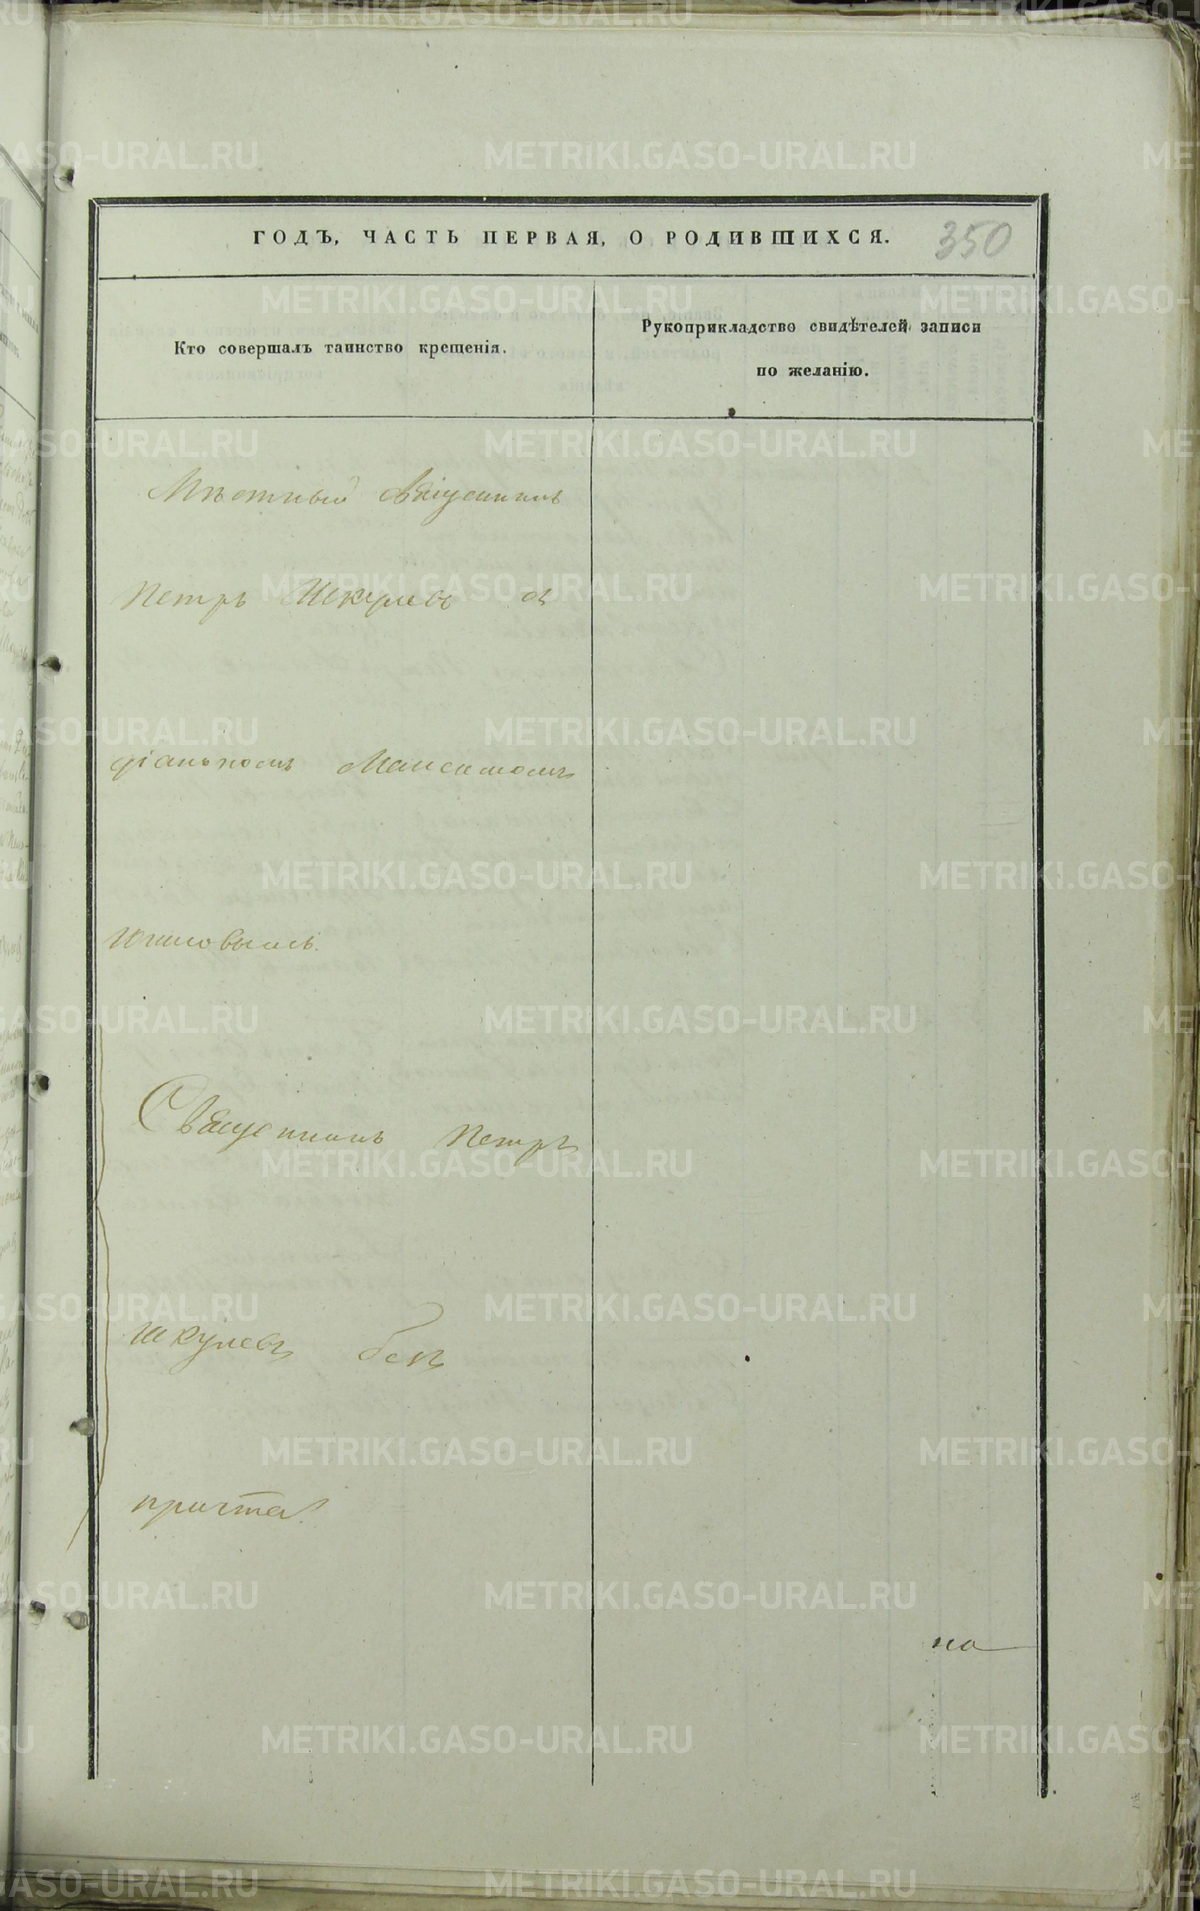 ГОДЪ, ЧАСТЬ ПЕРВАЯ, О РОДИВШИХСЯ. 350
Кто совершалъ таинство крещенія.
Рукоприкладство свидѣтелей записи
по желанію.
Мѣстный Священникъ
Петръ Шкулевъ съ
діакономъ Максимомъ
Священникъ Петръ
Шкулевъ безъ
причта.
на
METRIKI.GASO-URAL.RU